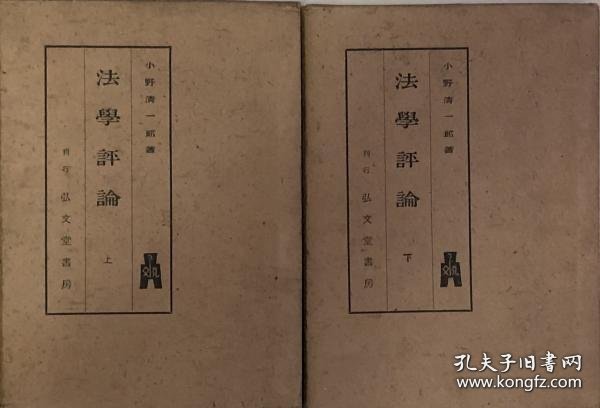 小野清一郎著
法學評論 上
刊行 弘文堂書房
小野清一郎著
法學評論 下
刊行 弘文堂書房
孔夫子旧书网
www.kongfz.com